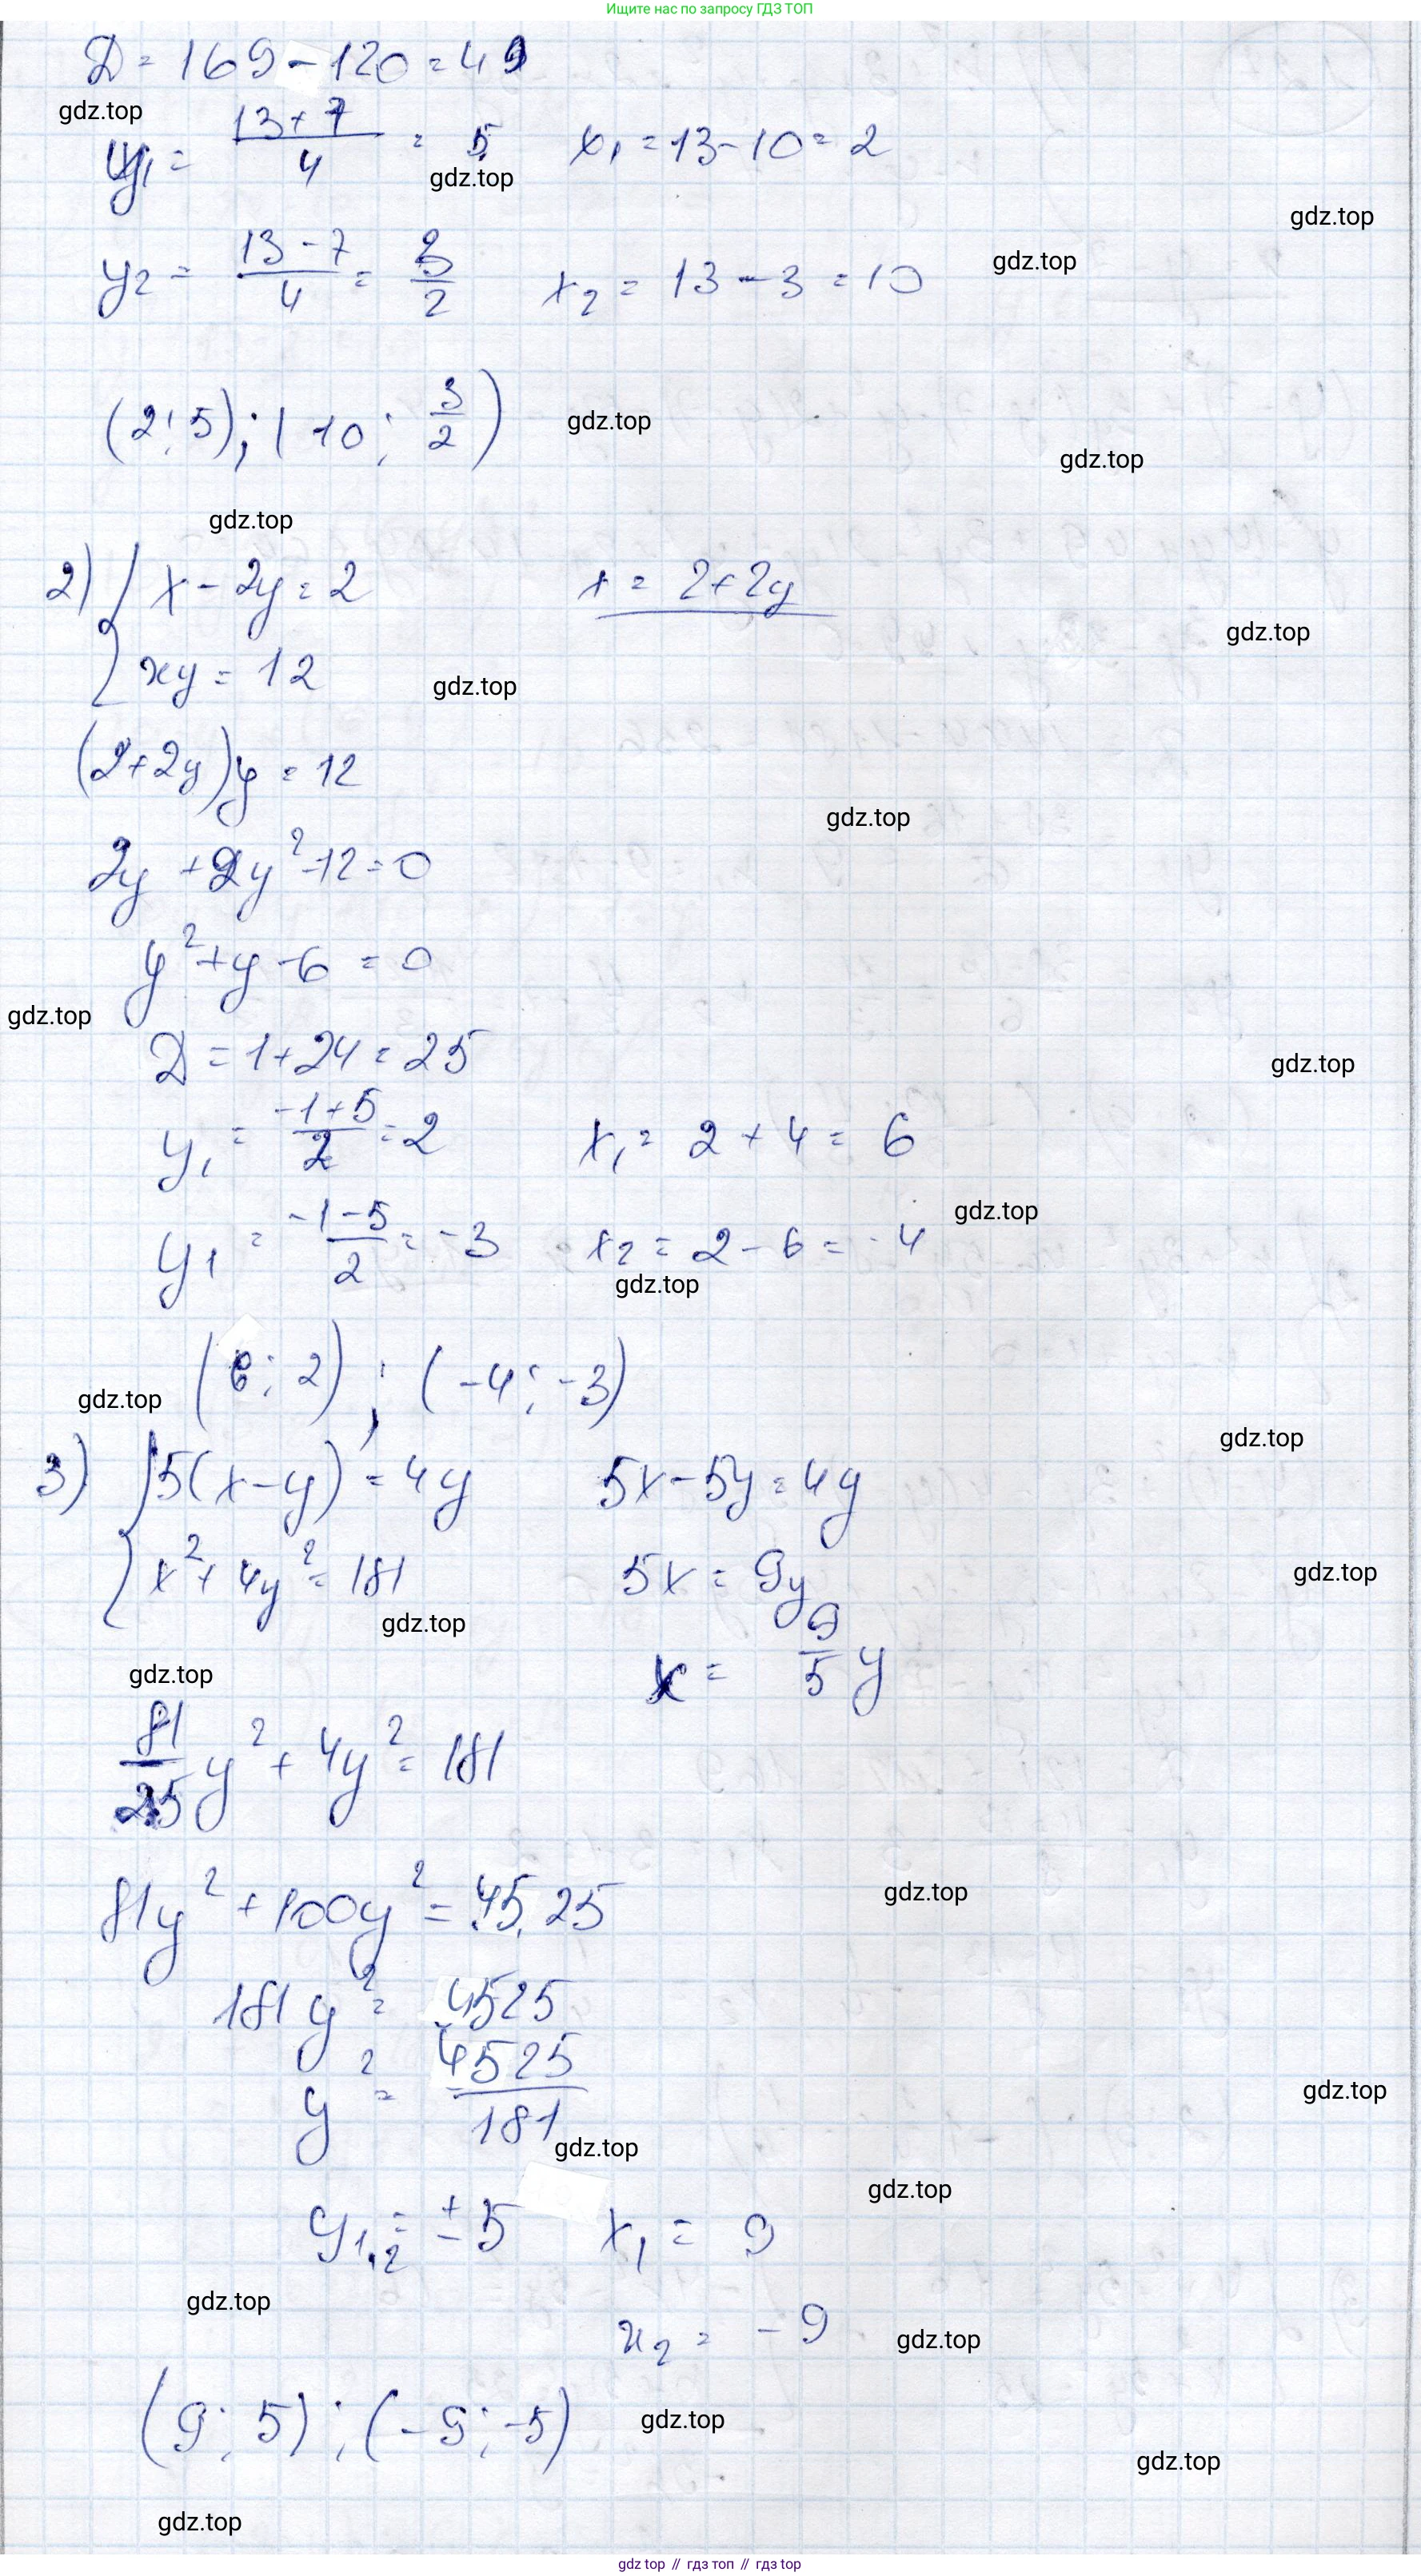 Ищите нас по запросу ГДЗ ТОП
D = 169 - 120 = 49
gdz.top
y₁ = (13+7)/4 = 5   x₁ = 13 - 10 = 2
gdz.top
gdz.top
y₂ = (13-7)/4 = 3/2   x₂ = 13 - 3 = 10
gdz.top
(2; 5); (10; 3/2)
gdz.top
gdz.top
gdz.top
2) { x - 2y = 2   x = 2+2y
gdz.top
xy = 12
gdz.top
(2+2y)y = 12
gdz.top
2y + 2y² - 12 = 0
y² + y - 6 = 0
gdz.top
D = 1+24 = 25
gdz.top
y₁ = (-1+5)/2 = 2   x₁ = 2 + 4 = 6
gdz.top
y₁ = (-1-5)/2 = -3   x₂ = 2 - 6 = -4
gdz.top
(6; 2); (-4; -3)
gdz.top
gdz.top
3) { 5(x-y) = 4y   5x - 5y = 4y
x² + 4y² = 181   5x = 9y
gdz.top
gdz.top
gdz.top
x = 9/5 y
81/25 y² + 4y² = 181
81y² + 100y² = 45,25
gdz.top
181y² = 4525
y² = 4525/181
gdz.top
gdz.top
gdz.top
y₁,₂ = ±5   x₁ = 9
gdz.top
x₂ = -9
gdz.top
(9; 5); (-9; -5)
gdz.top
gdz.top
gdz.top
gdz top // гдз топ // гдз top